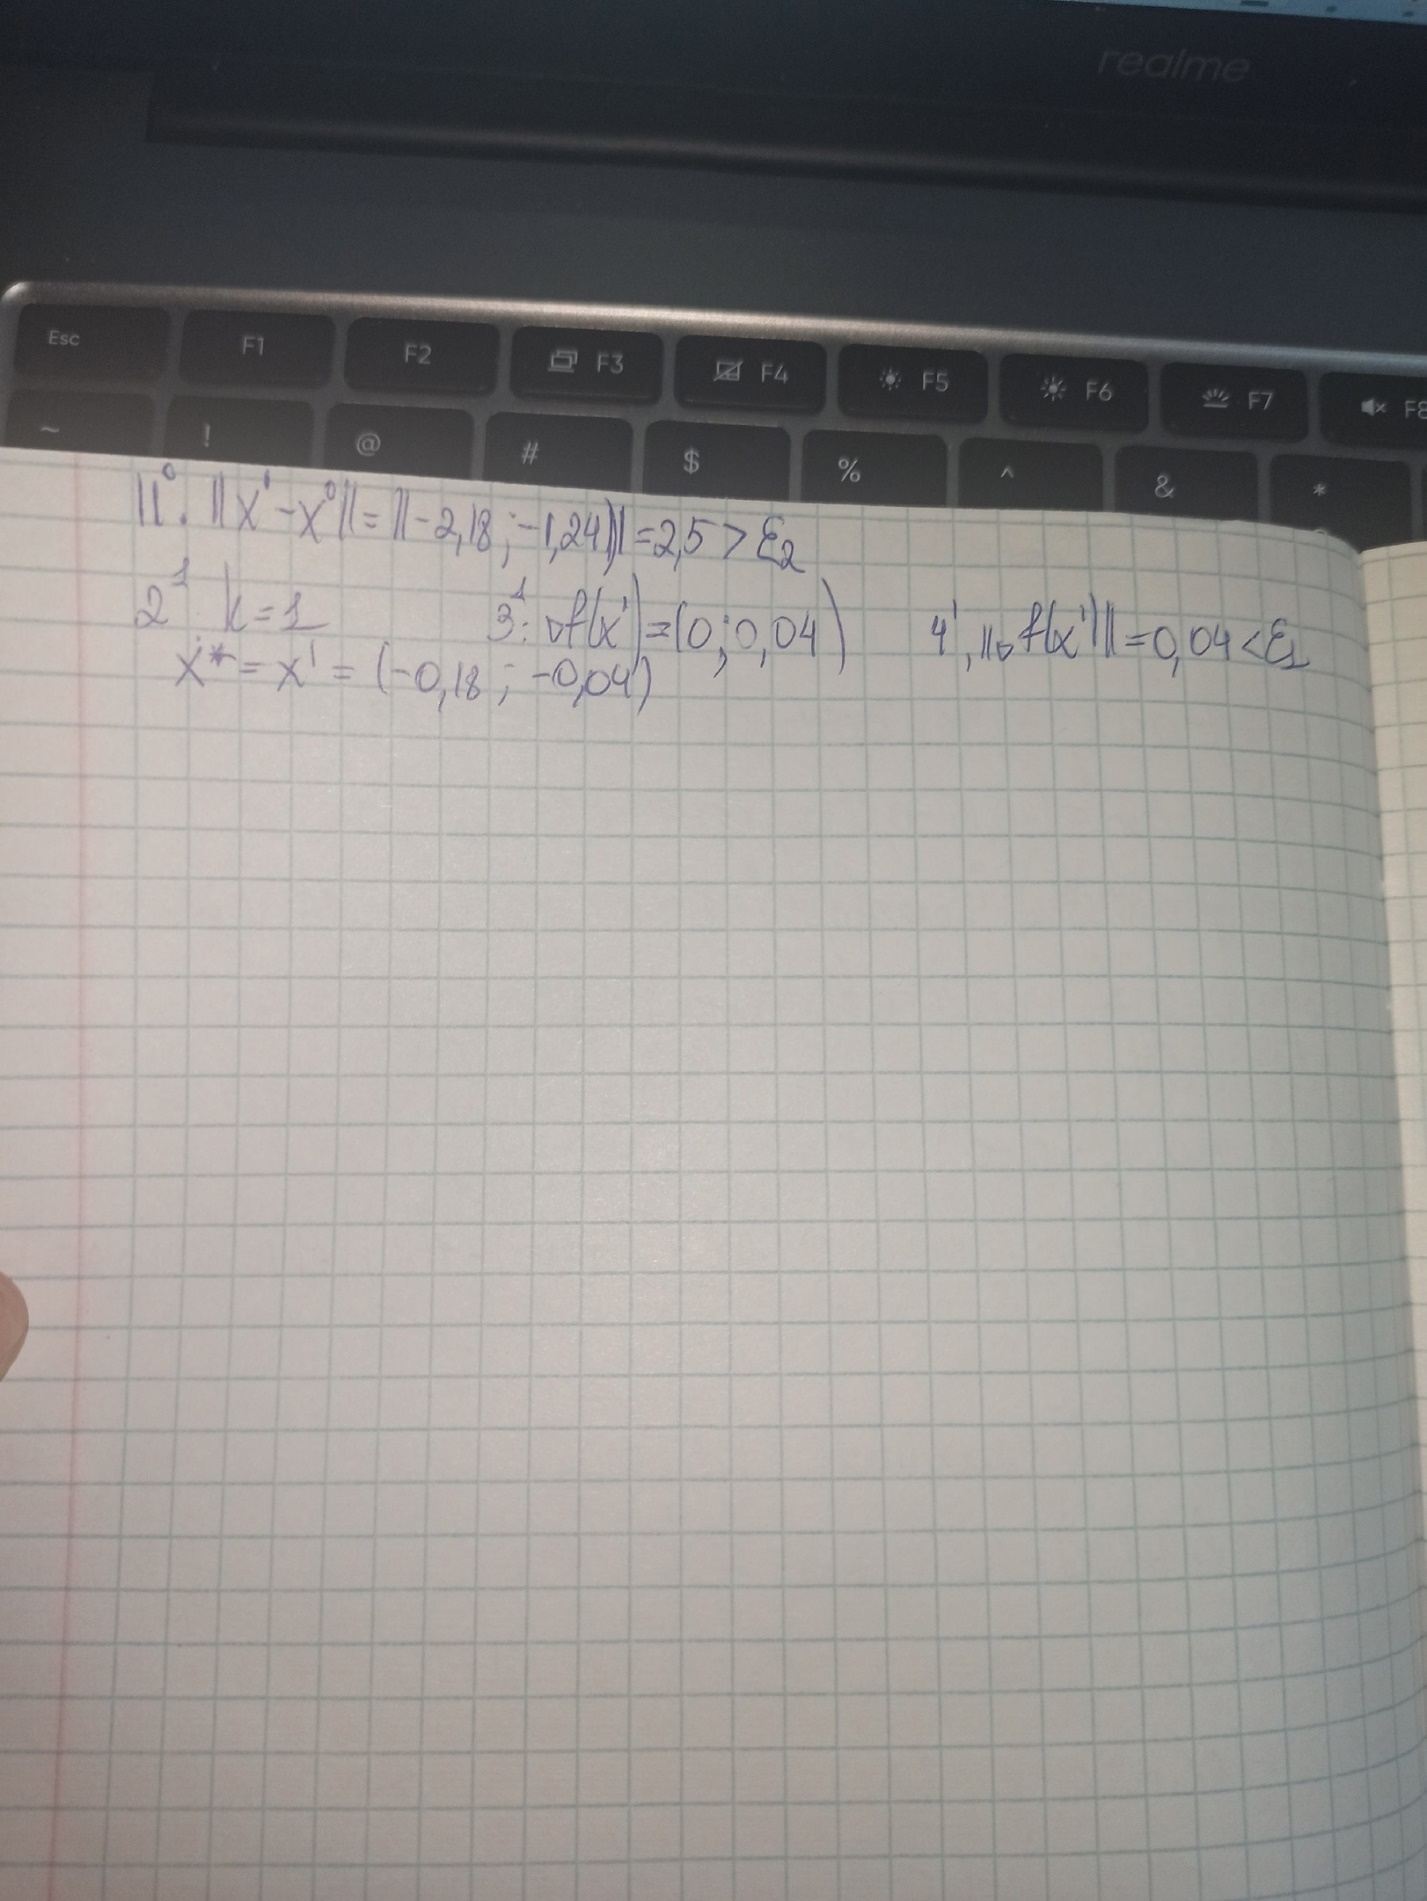 realme
Esc F1 F2 F3 F4 F5 F6 F7 F8
~ ! @ # $ % ^ & *
11⁰. ||x¹-x⁰|| = ||-2,18 ; -1,24)|| = 2,5 > ε₂
2¹ k=1 3¹: ∇f(x¹) = (0; 0,04) 4¹, ||∇f(x¹)|| = 0,04 < ε₁
x* = x¹ = (-0,18 ; -0,04)